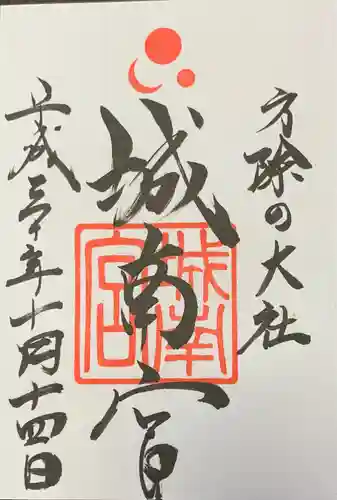 方除の大社
城南宮
城南宮
平成三十年十月十四日